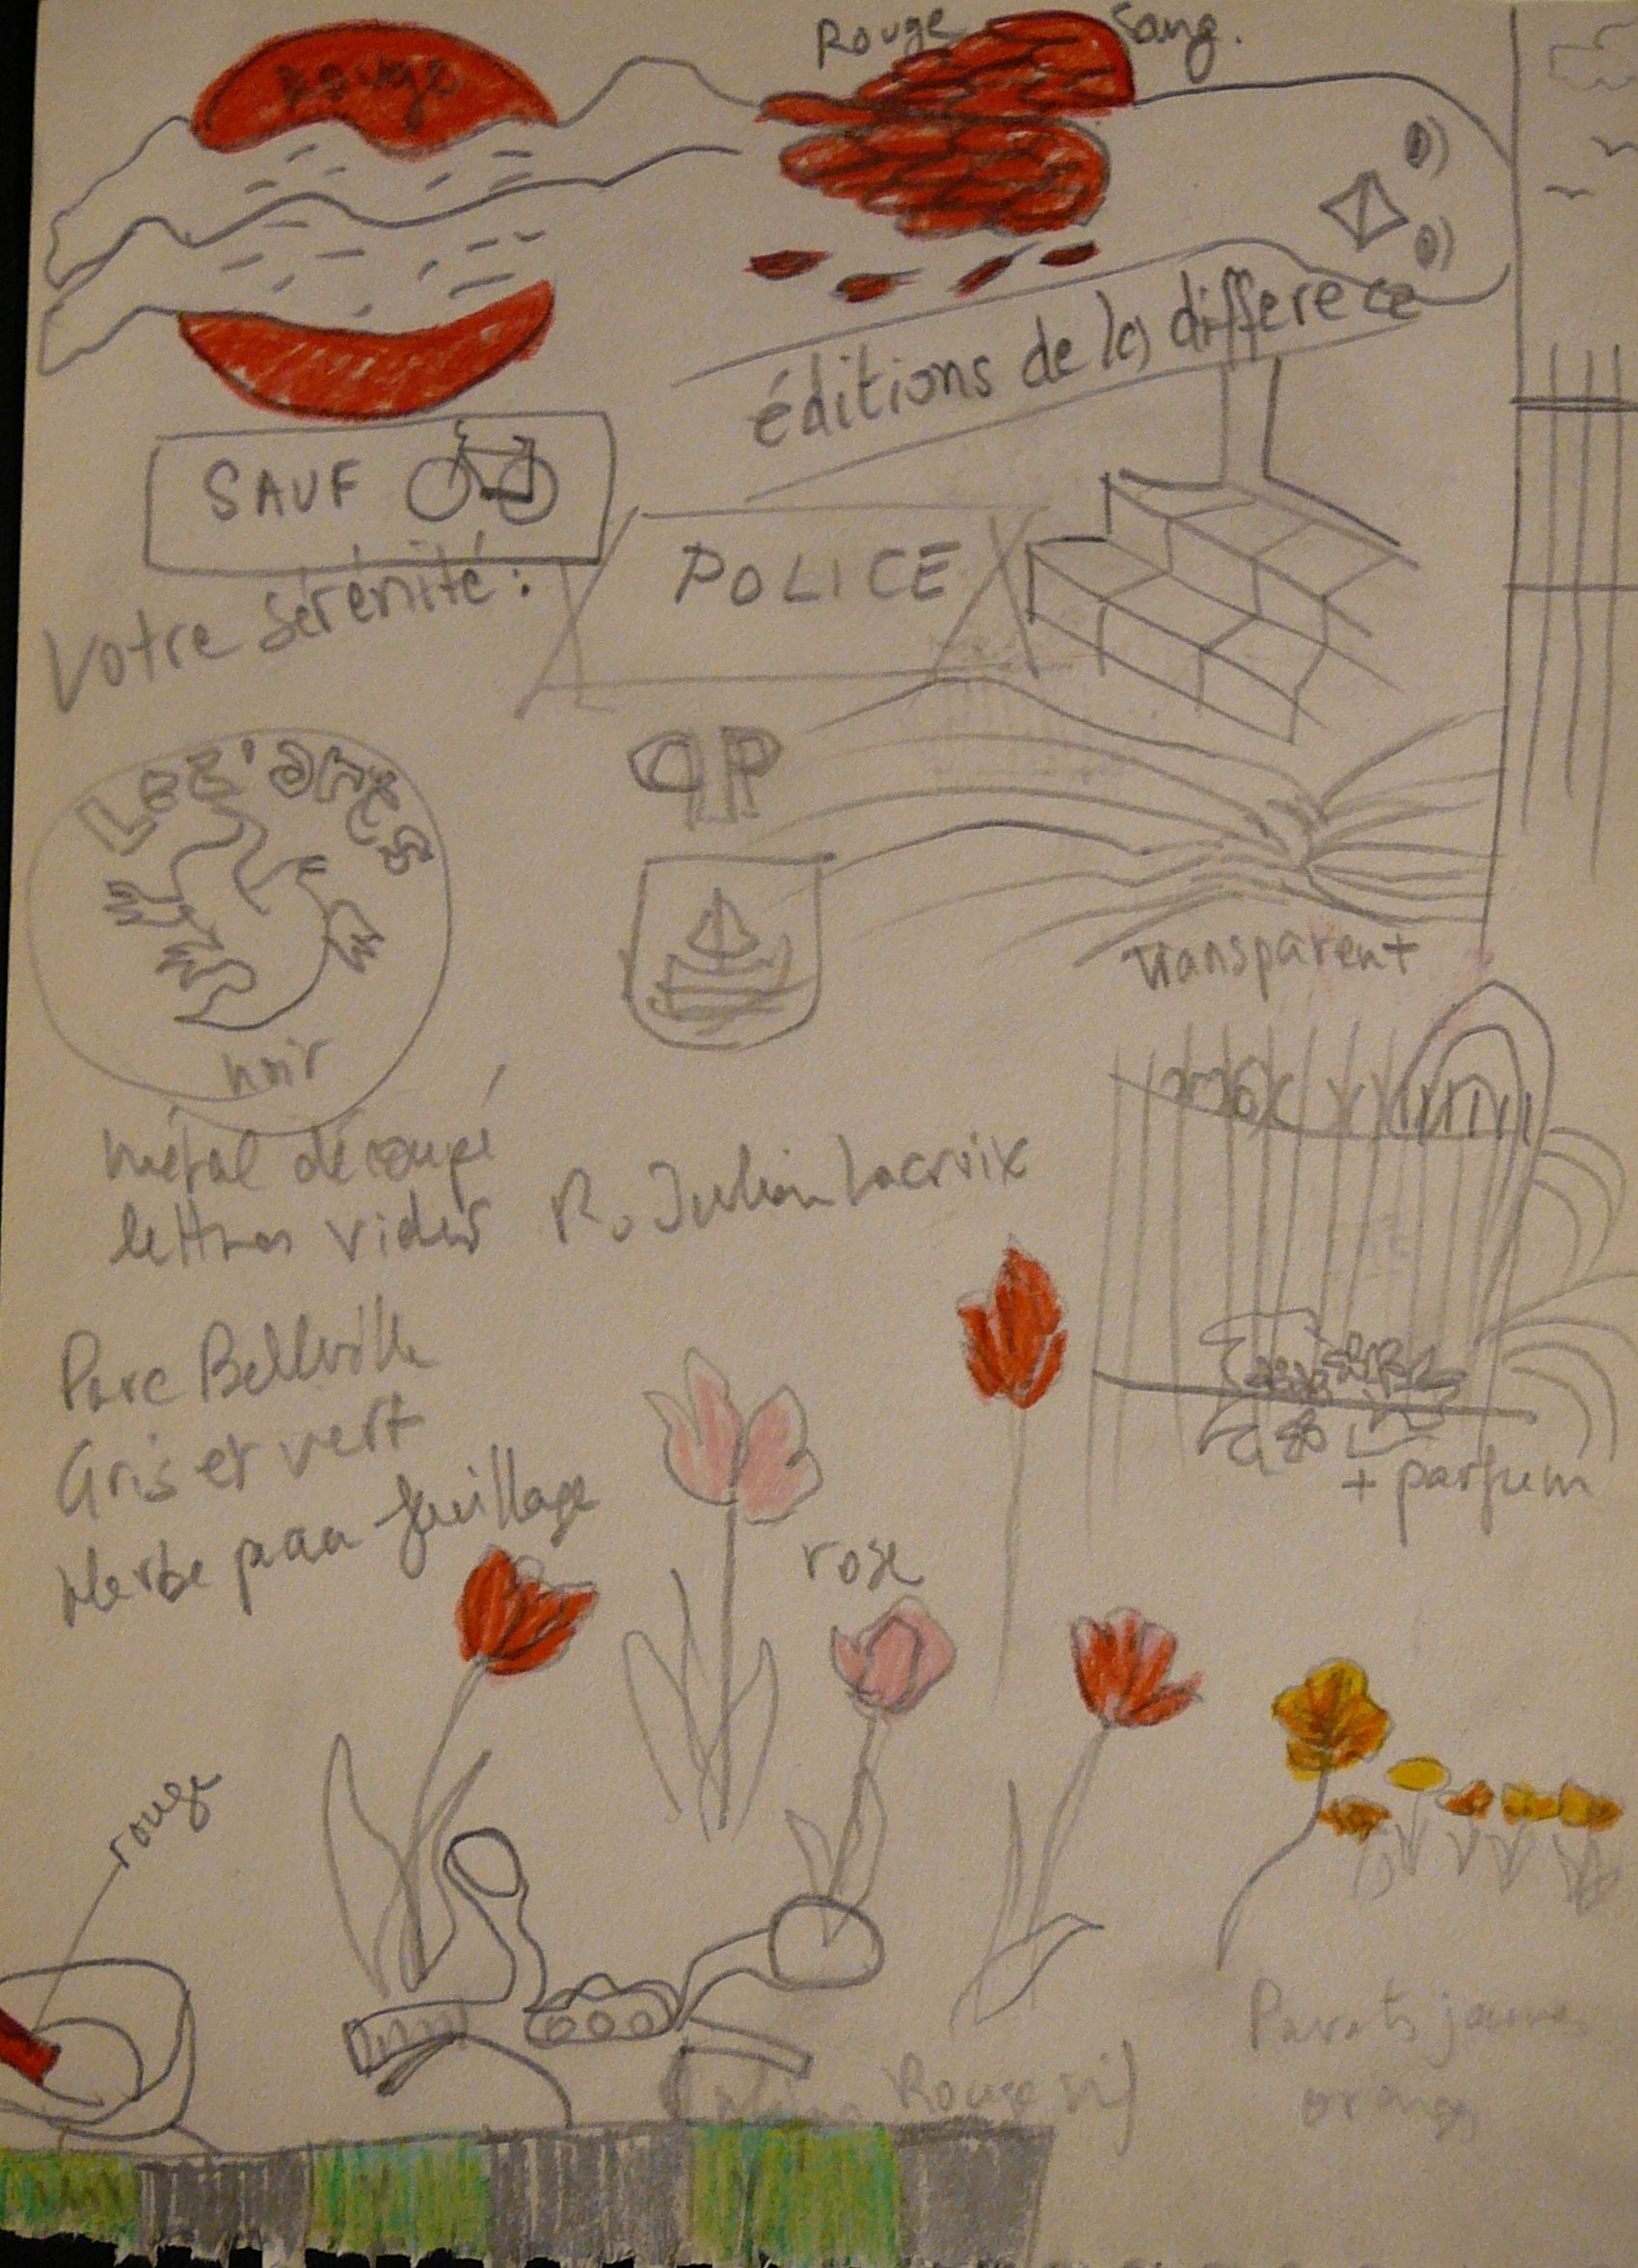 Rouge
Rouge Sang.
éditions de la différece
SAUF
POLICE
Votre sérénité:
LEZ'ARTS
noir
transparent
métal découpé
lettres vides
R. Julien Lacroix
Parc Bellville
Gris et vert
Herbe feuillage
+ parfum
rose
rouge
Pavots jaunes
oranges
Rouge vif